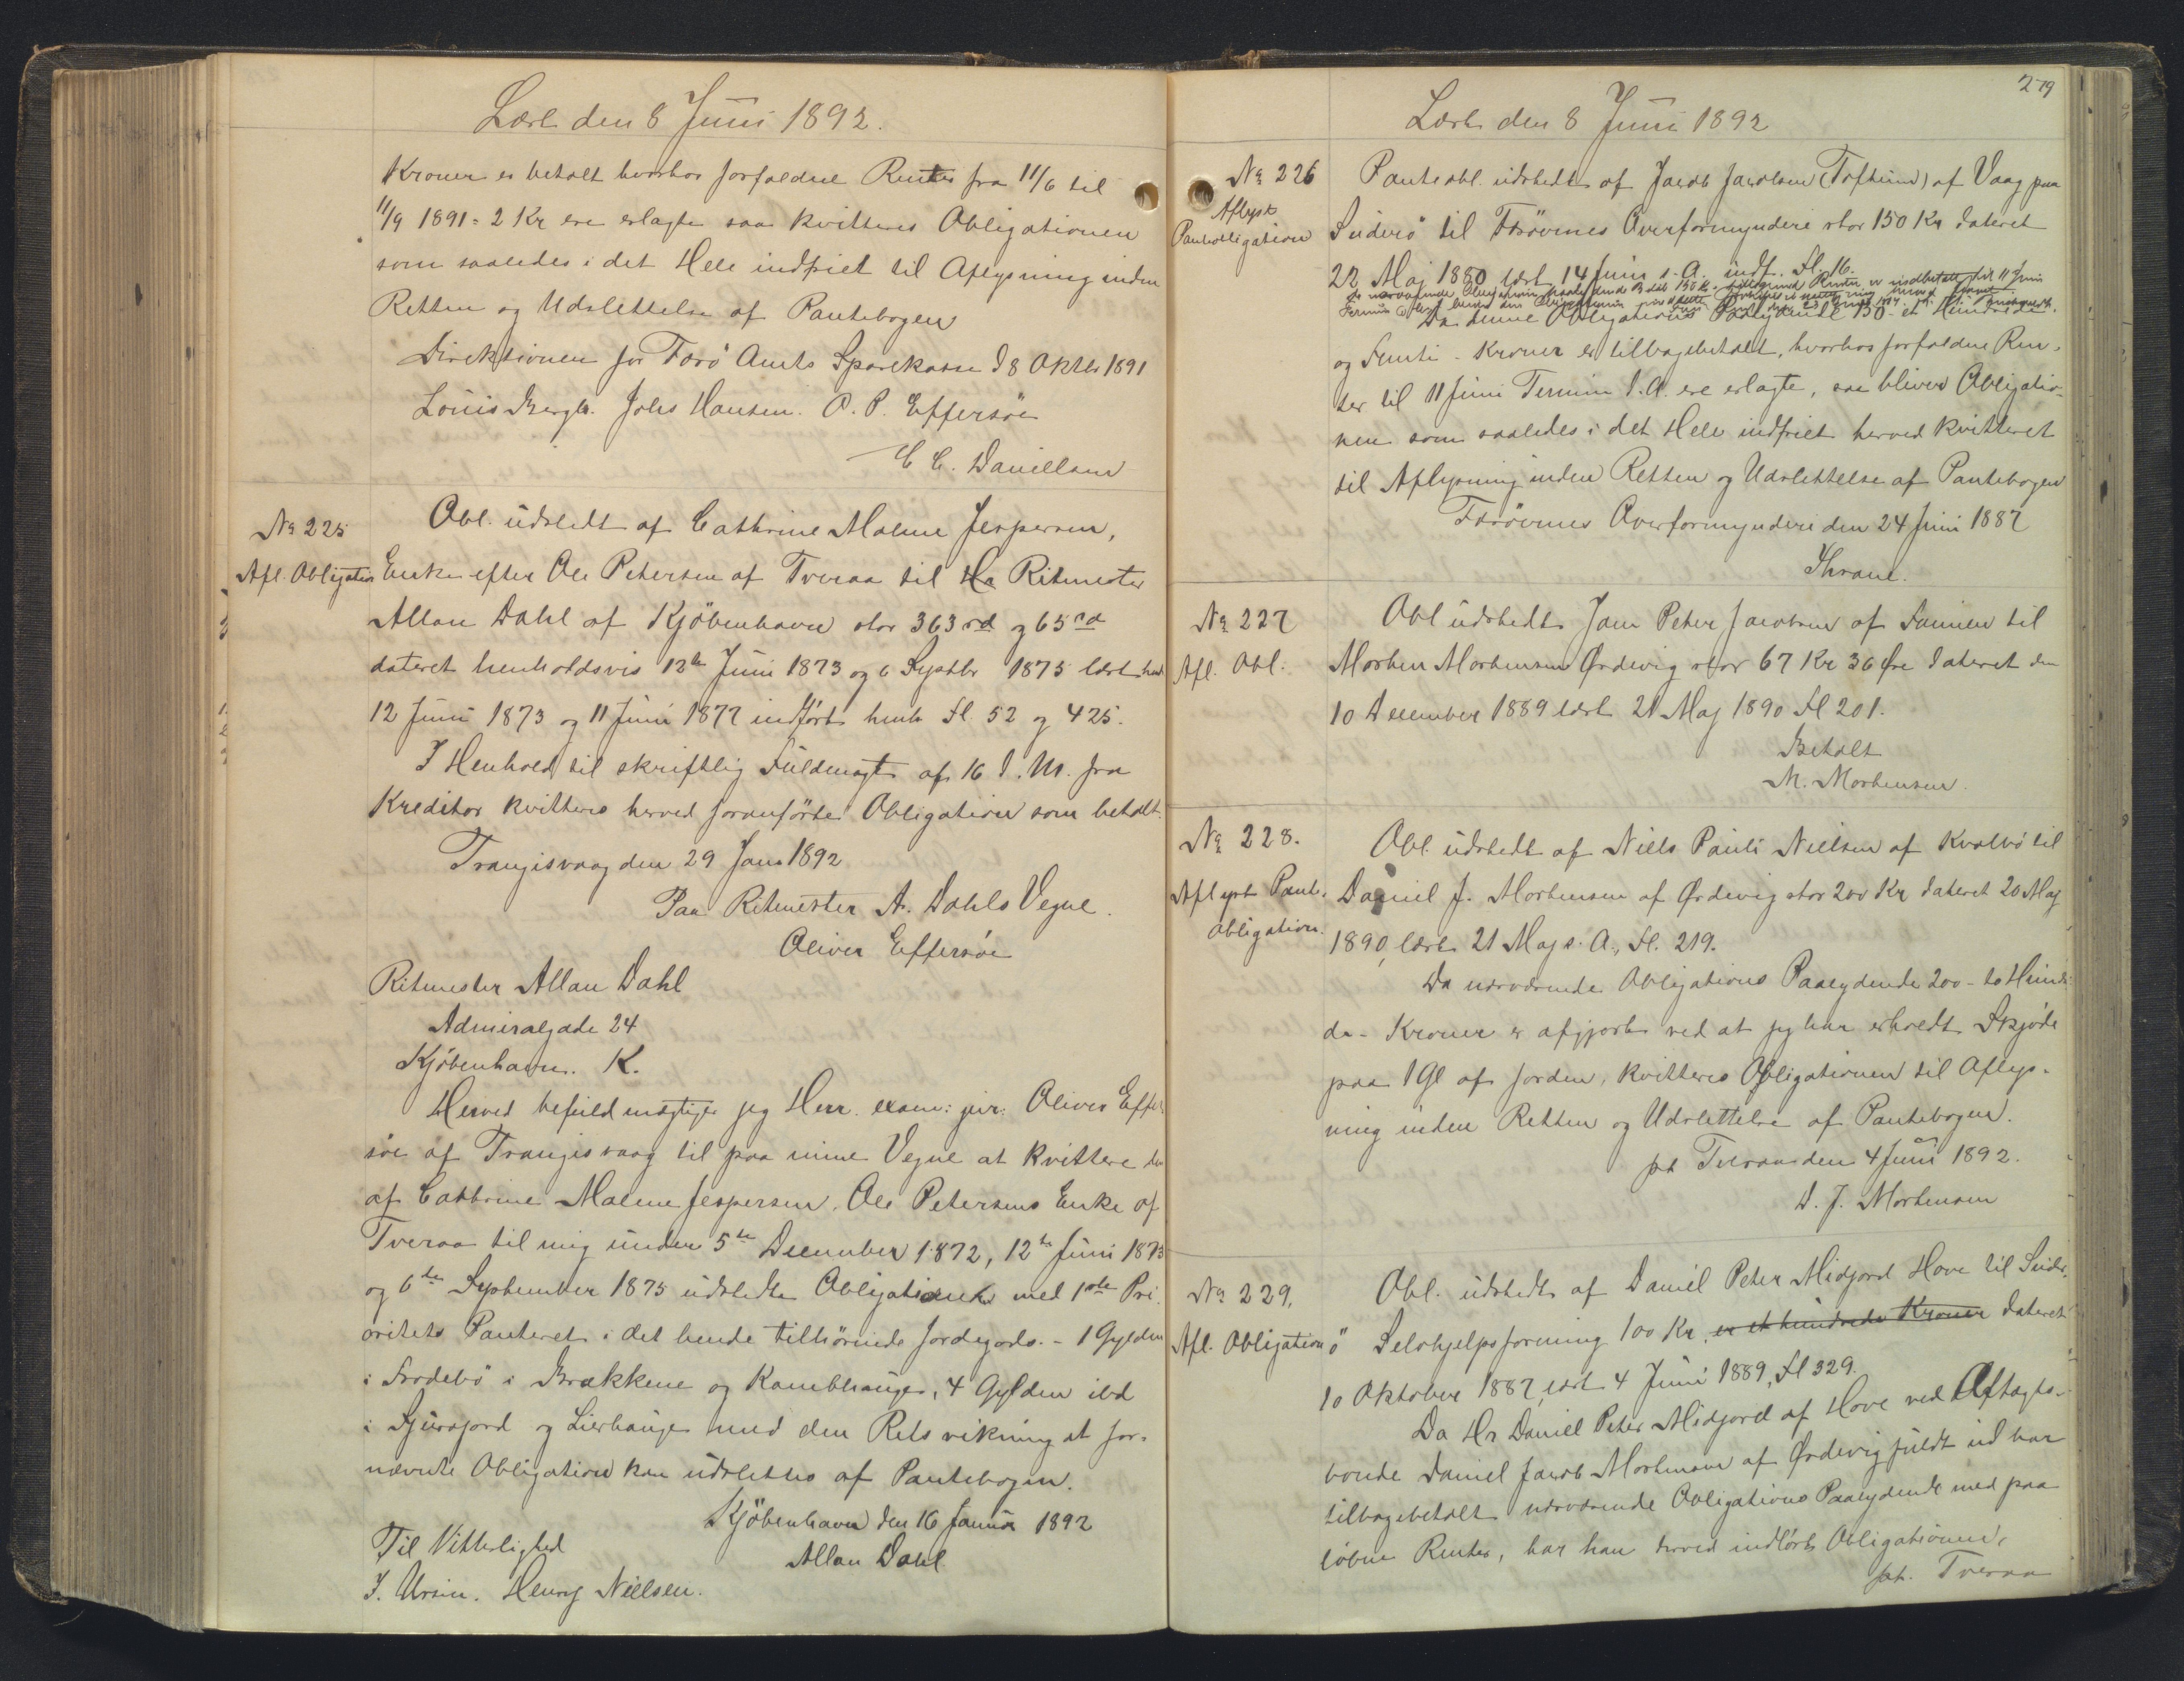 Læst den 8 Juni 1892.
Kroner er betalt hvorhos forfaldne Renter fra 11/6 til
11/9 1891 = 2 Kr ere erlagte saa kvitteres Obligationen
som saaledes i det Hele indfriet til Aflysning inden
Retten og Udslettelse af Pantebogen
Direktionen for Færø Amts Sparekasse d 8 Oktbr 1891
Louis Bergh. Johs Hansen. O. P. Effersöe
C C. Danielsen
No 225
Afl. Obligation
Obl. udstedt af Cathrine Malene Jespersen,
Enke efter Ole Petersen af Tveraa til Hr Ritmester
Allan Dahl af Kjöbenhavn stor 363 rd og 65 rd
dateret henholdsvis 12te Juni 1873 og 6 Septbr 1875 læst henh.
12 Juni 1873 og 11 Juni 1877 indfört henh Fl. 52 og 425.
I Henhold til skriftlig Fuldmagt af 16 d. M. fra
Kreditor kvitteres herved foranförte Obligation som betalt.
Trangisvaag den 29 Janr 1892
Paa Ritmester A. Dahls Vegne.
Oliver Effersöe
Ritmester Allan Dahl
Admiralgade 24
Kjöbenhavn. K.
Herved befuldmægtiger jeg Herr. exam: jur: Oliver Effer-
söe af Trangisvaag til paa mine Vegne at kvittere den
af Cathrine Malene Jespersen, Ole Petersens Enke af
Tveraa til mig under 5te December 1872, 12te Juni 1873
og 6te September 1875 udstedte Obligation med 1ste Pri-
oritets Panteret i det hende tilhörende Jordegods. - 1 Gylden
i Frodebö i Brækkene og Kambhauge, 4 Gylden ibd
i Sjursgord og Lierhauge med den Retsvirkning at for-
nævnte Obligation kan udslettes af Pantebogen.
Kjöbenhavn den 16 Januar 1892
Til Vitterlighed
Allan Dahl
J. Ursin. Henry Nielsen.
279
Læst den 8 Juni 1892
No 226
Aflyst
Pantobligation
Panteobl. udstedt af Jacob Jacobsen (Toftum) af Vaag paa
Suderö til Færöernes Overformynderi stor 150 Kr dateret
22 Maj 1880 læst 14 Juni s. A. indf. Fl. 16.
Da denne Obligations Paalydende 150 - et Hundrede
og Femti - Kroner er tilbagebetalt, hvorhos forfaldne Ren-
ter til 11 Juni Termin d. A. ere erlagte, saa bliver Obligatio-
nen som saaledes i det Hele indfriet herved kvitteret
til Aflysning inden Retten og Udslettelse af Pantebogen
Færöernes Overformynderi den 24 Juni 1887
Thrane.
No 227
Afl. Obl.
Obl udstedt Jane Peter Jacobsen af Famien til
Morten Mortensen Ørdevig stor 67 Kr 36 Øre dateret den
10 December 1889 læst 21 Maj 1890 Fl 201.
Betalt
M. Mortensen.
No 228.
Aflyst Pante-
obligation.
Obl. udstedt af Niels Pauli Nielsen af Kvalbö til
Daniel J. Mortensen af Ørdevig stor 200 Kr dateret 20 Maj
1890, læst 21 Maj s. A., Fl. 219.
Da nærværende Obligations Paalydende 200 - to Hundre
de - Kroner er afgjort ved at jeg har erholdt Skjöde
paa 1 Gl af Jorden, kvitteres Obligationen til Aflys-
ning inden Retten og Udslettelse af Pantebogen.
pt Tveraa den 4 Juni 1892.
D. J. Mortensen
No 229.
Afl. Obligation
Obl. udstedt af Daniel Peter Midjord Hove til Suder-
ö Selvhjelpsforening 100 Kr, er et hundrede Kroner dateret
10 Oktober 1887 læst 4 Juni 1889, Fl 329.
Da Hr Daniel Peter Midjord af Hove ved Aftægts-
bonde Daniel Jacob Mortensen af Ørdevig fuldt ud har
tilbagebetalt nærværende Obligations Paalydende med paa
löbne Renter, har han derved indlöst Obligationen,
pt. Tveraa